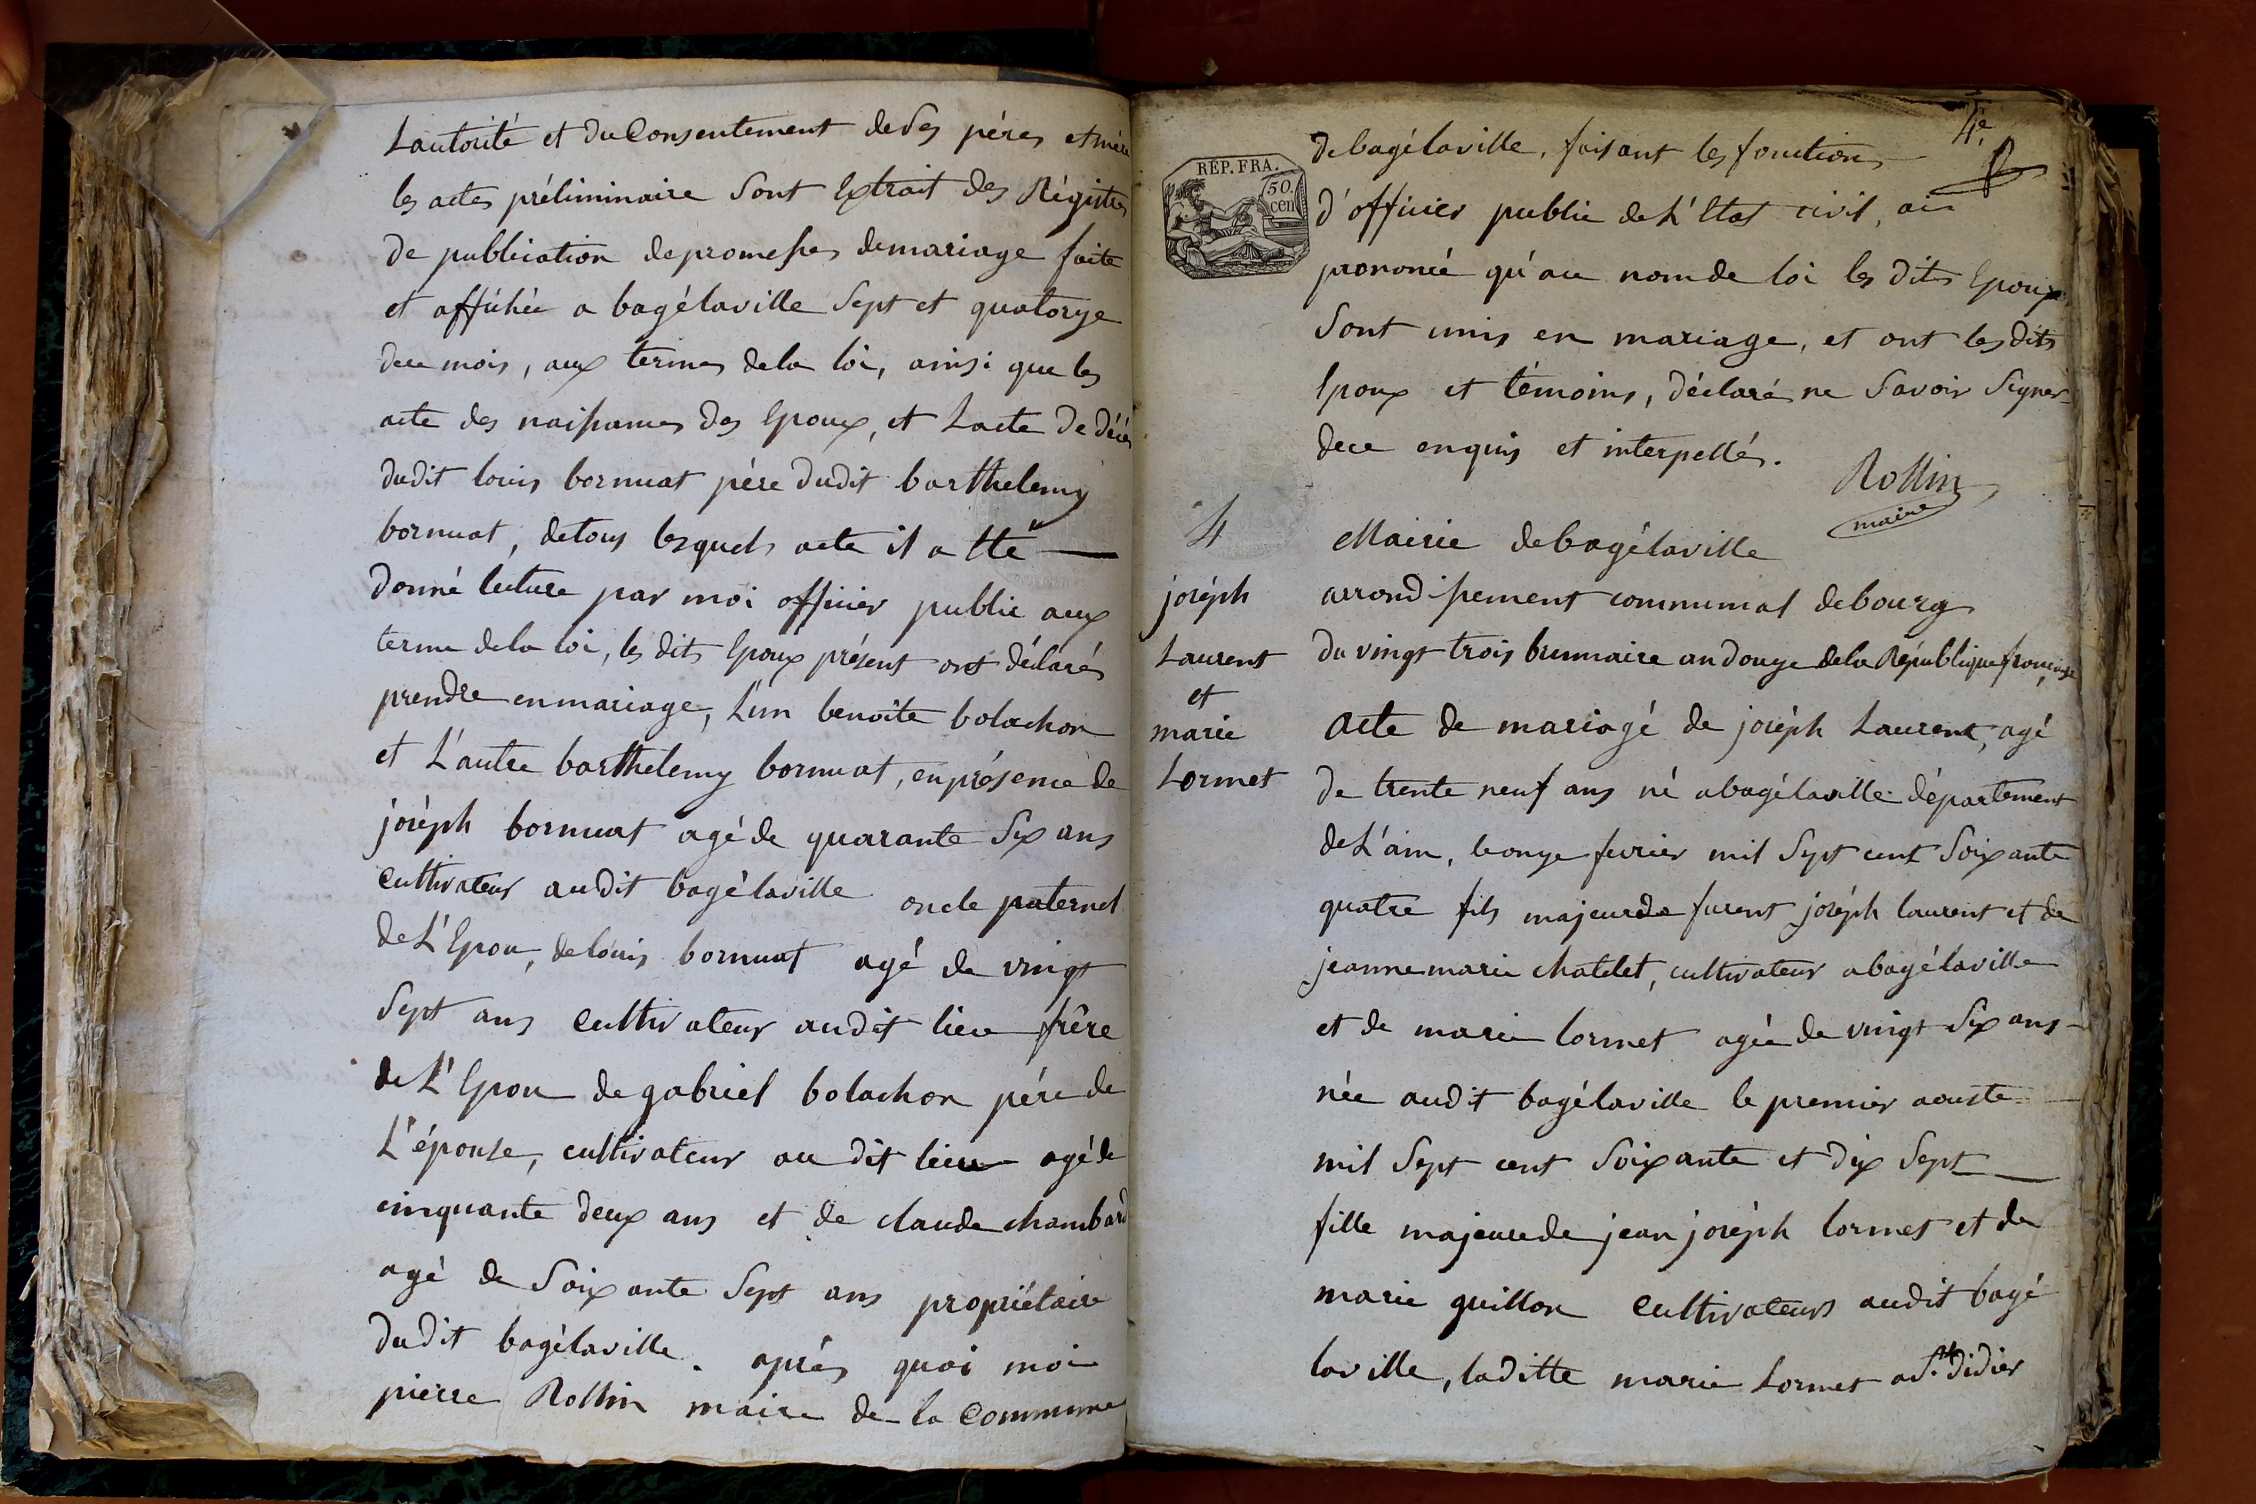 Lautorité et du Consentement de Ses pérés et mère
les actes préliminaire Sont Extrait des Régistres
de publication de promesses de mariage faite
et affichée a bagélaville Sept et quatorze
de ce mois, aux termes de la loi, ainsi que les
acte des naissances des Epoux, et Lacte De décés
dudit louis bornuat pére dudit barthelemy
bornuat, de tous lesquels acte il a Eté
donné lecture par moi officier public aux
terme de la loi, les dits Epoux présent ont déclarés
prendre en mariage, L'un benoite bolachon
et L'autre barthelemy bornuat, en présence de
joséph bornuat agé de quarante Six ans
Cultivateur audit bagélaville oncle paternel
de L'Epou, de louis bornuat agé de vingt
Sept ans Cultivateur audit lieu frére
de L'Epou de gabriel bolachon pére de
L'épouse, cultivateur au dit lieu agé de
cinquante deux ans et de claude chambard
agé de Soixante Sept ans propriétaire
dudit bagélaville. aprés quoi moi
pierre Rollin maire de la Commune
4e.
REP. FRA.
50.
cen
de bagélaville, faisant les fonctions
d'officier public de L'Etat civil, ai
prononcé qu'au nom de loi les dits Epoux
Sont unis en mariage, et ont les dits
Epoux et témoins, déclaré ne Savoir Signer
de ce enquis et interpellés.
Rollin
maire
4
joséph
Laurent
et
marie
Lormet
Mairie de bagélaville
arrondissement communal de bourg
du vingt trois brumaire an douze de la République française
Acte de mariagé de joséph Laurent, agé
de trente neuf ans né a bagélaville département
de L'ain, le onze fevrier mil Sept cent Soixante
quatre fils majeur de furent joséph laurent et de
jeanne marie chatelet, cultivateur a bagélaville
et de marie lormet agée de vingt Six ans
née audit bagélaville le premier aouste
mil Sept cent Soixante et dix Sept
fille majeure de jean joséph lormet et de
marie guillon Cultivateurs audit bagé
laville, laditte marie Lormet a St. didier